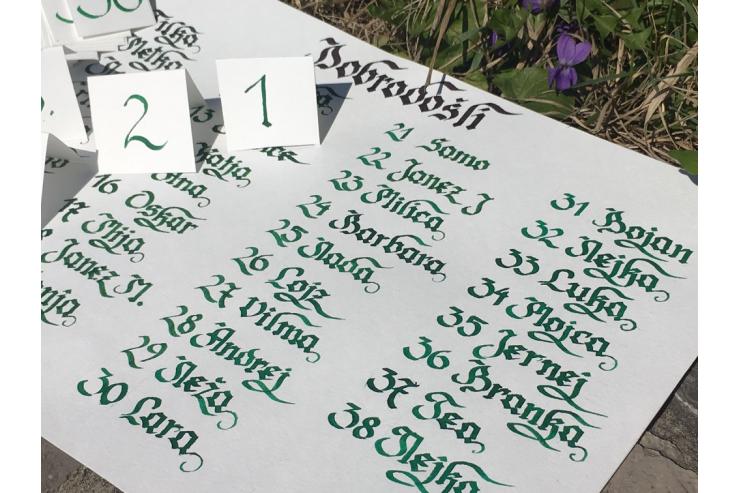 Dobrodošli
30
2
1
13
Katja
16 Oskar
17 Mija
Janez M.
21 Samo
22 Janez J
23 Milica
24 Barbara
25 Nada
26 Lojz
27 Vilma
28 Andrej
29 Neža
30 Lara
31 Bojan
32 Nejka
33 Luka
34 Mojca
35 Jernej
36 Branka
37 Tea
38 Nejka